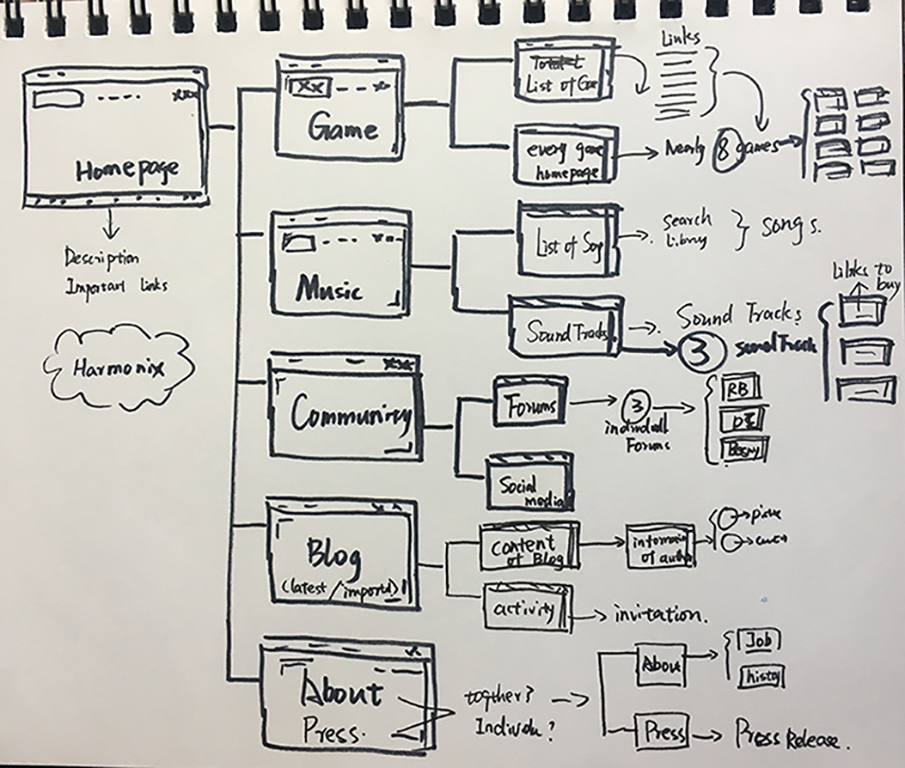 Homepage
Description
Important links
Harmonix
XX
Game
List of Ga
Links
every game
homepage
Nearly 8 games
Music
List of Sog
search
songs.
Sound Tracks
Sound Tracks
3 soundTrack
Links to
buy
Community
Forums
3
individual
Forums
RB
Social
media
Blog
(latest/importa)
content
of Blog
of autho
activity
invitation.
About
Press.
together?
Individu?
About
Job
histoy
Press
Press Release.